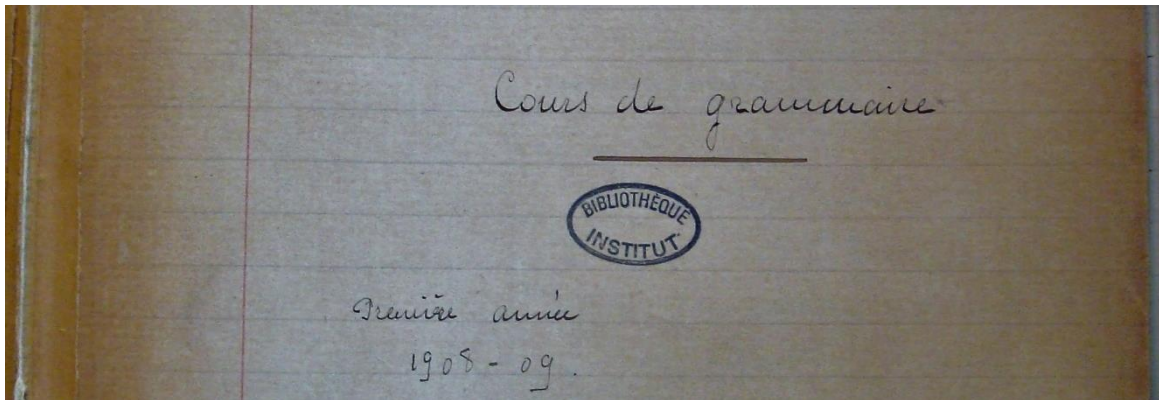 Cours de grammaire
BIBLIOTHÈQUE
INSTITUT
Première année
1908 - 09.